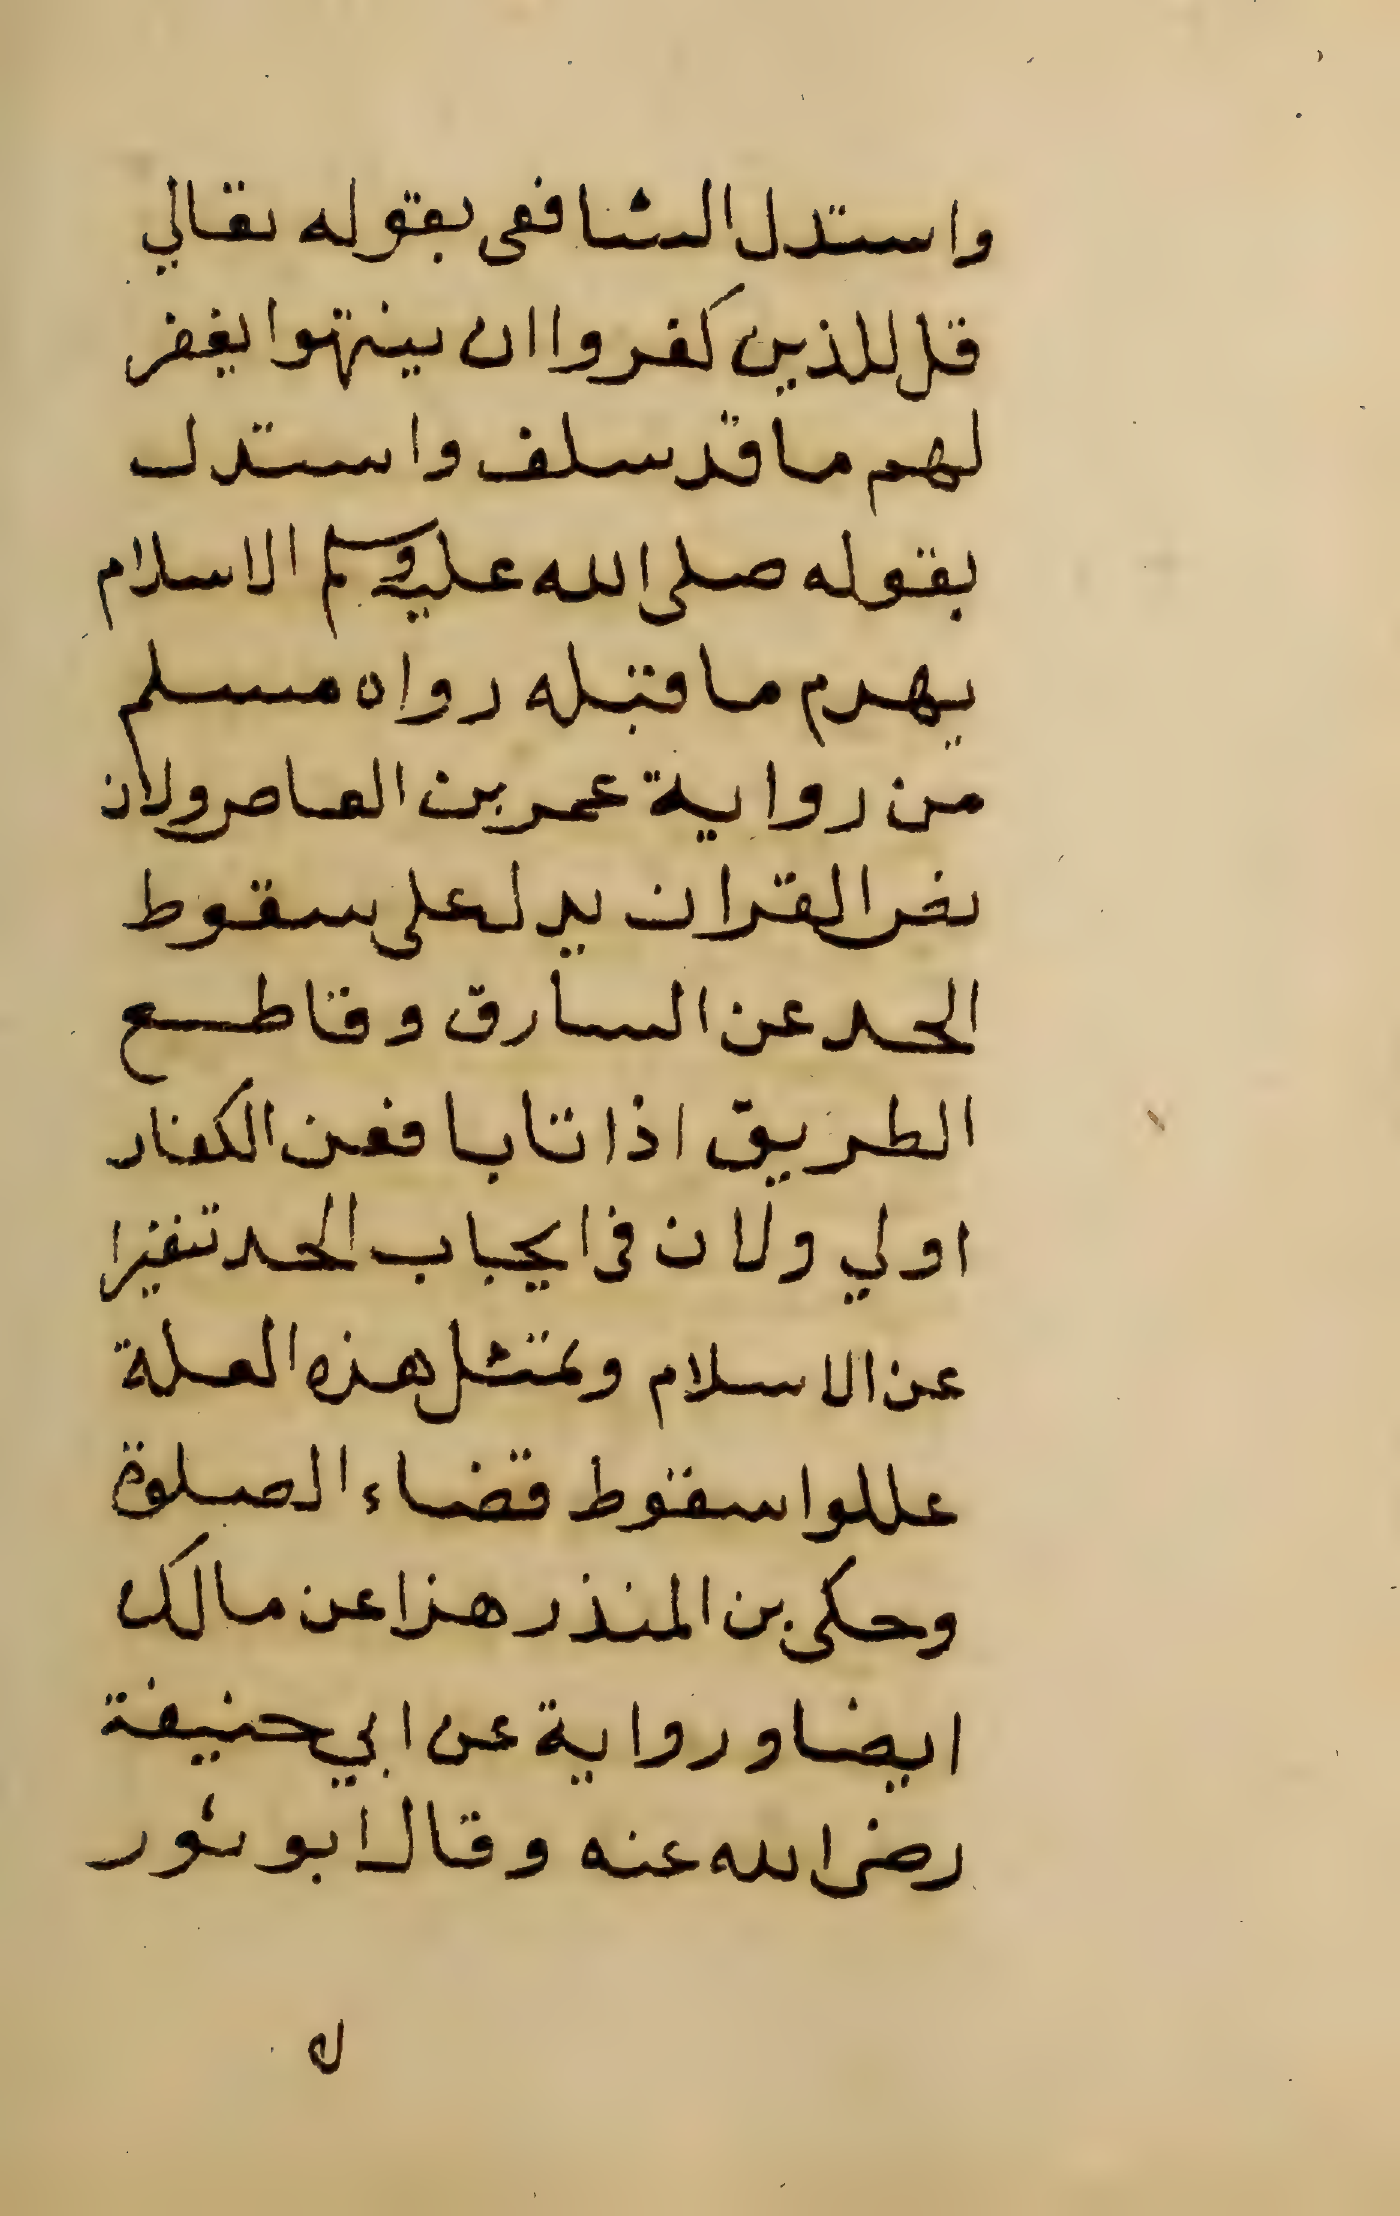 واستدل الشافعى بقوله تعالي
قل للذين كفروا ان ينتهوا يغفر
لهم ما قد سلف واستدل
بقوله صلى الله عليه وسلم الاسلام
يهدم ما قبله رواه مسلم
من رواية عمر بن العاص ولان
نص القران يدل على سقوط
الحد عن السارق وقاطع
الطريق اذا تابا فعن الكفار
اولي ولان فى ايجاب الحد تنفيرا
عن الاسلام وبمثل هذه العلة
عللوا سقوط قضاء الصلوة
وحكى بن المنذر هذا عن مالك
ايضا ورواية عن ابي حنيفة
رضى الله عنه وقال ابو ثور